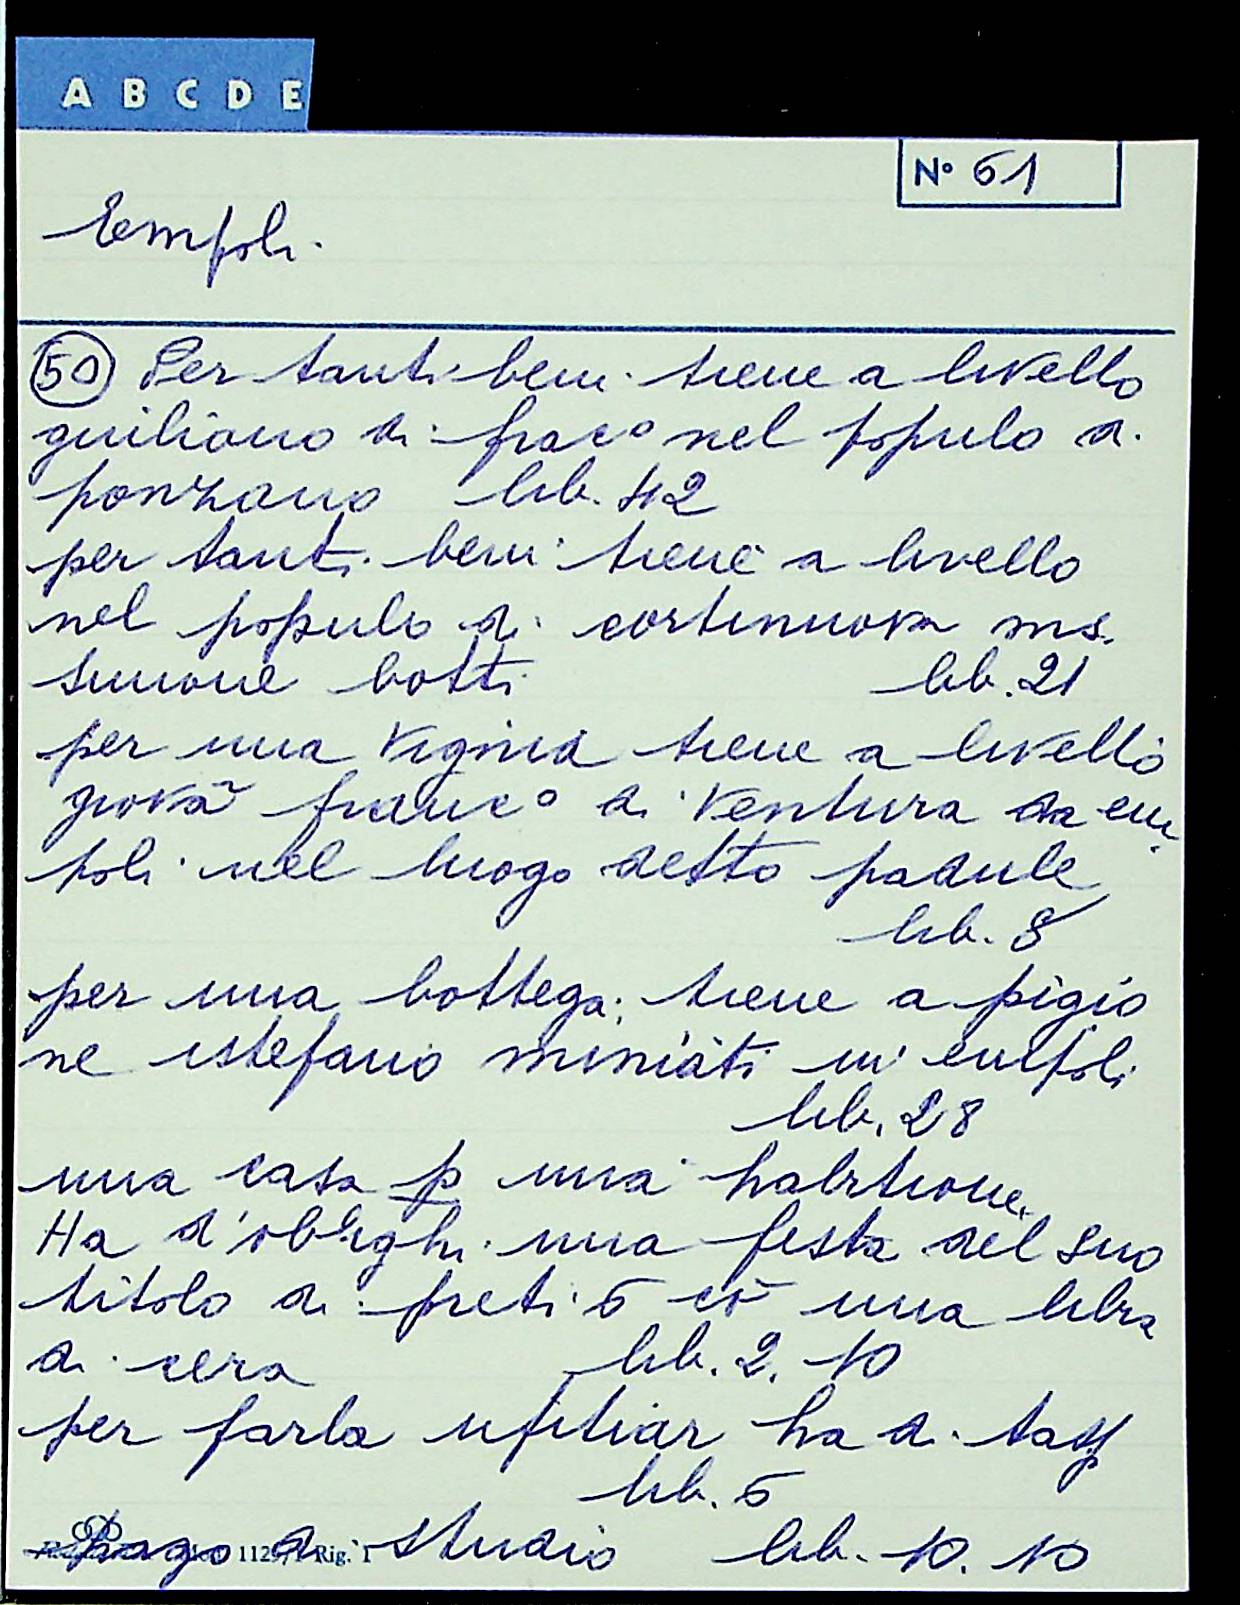 A B C D E
N° 61
Empoli.
50 Per tanti beni tiene a livello
giuliano di fraco nel populo di
ponzano lib. 42
per tanti beni tiene a livello
nel populo di cortenuova ms.
simone botti lib. 21
per una vigna tiene a livello
giovã franco di ventura da em
poli nel luogo detto padule
lib. 8
per una bottega tiene a pigio
ne istefano miniati in empoli
lib. 28
una casa p una habitione.
Ha d'oblighi una festa del suo
titolo di preti 6 cõ una libra
di cera lib. 2. 10
per farla ufitiar ha di
lib. 6
Pago di studio lib. 10. 10
Rig. 1